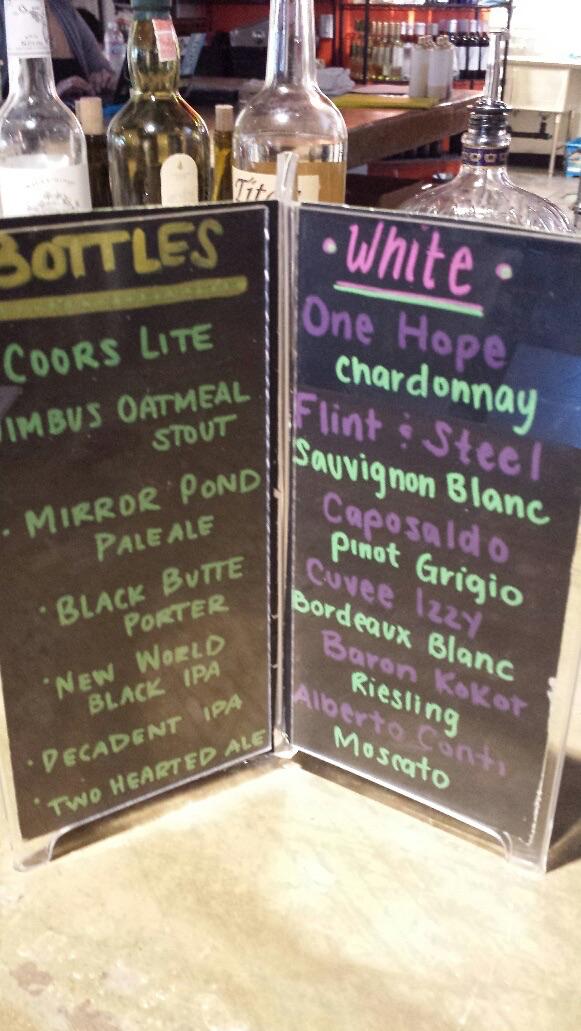 BOTTLES
COORS LITE
NIMBUS OATMEAL
STOUT
· MIRROR POND
PALE ALE
· BLACK BUTTE
PORTER
· NEW WORLD
BLACK IPA
· DECADENT IPA
· TWO HEARTED ALE
· White ·
One Hope
Chardonnay
Flint & Steel
Sauvignon Blanc
Caposaldo
Pinot Grigio
Cuvee Izzy
Bordeaux Blanc
Baron KoKor
Riesling
Alberto Conti
Moscato
Tito's